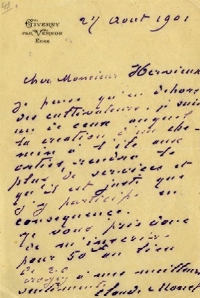 Giverny
par Vernon
Eure
27 Août 1901
Cher Monsieur Hervieux
Je pense qu'en dehors
des cultivateurs, je suis
un de ceux auquel
la création d'un che-
à l'île aux
orties, rendra le
plus de services et
qu'il est juste que
j'y participe en
conséquence.
Je vous prie donc
de m'inscrire
pour 50 au lieu
de
croyez à mes meilleurs
sentiments Claude Monet